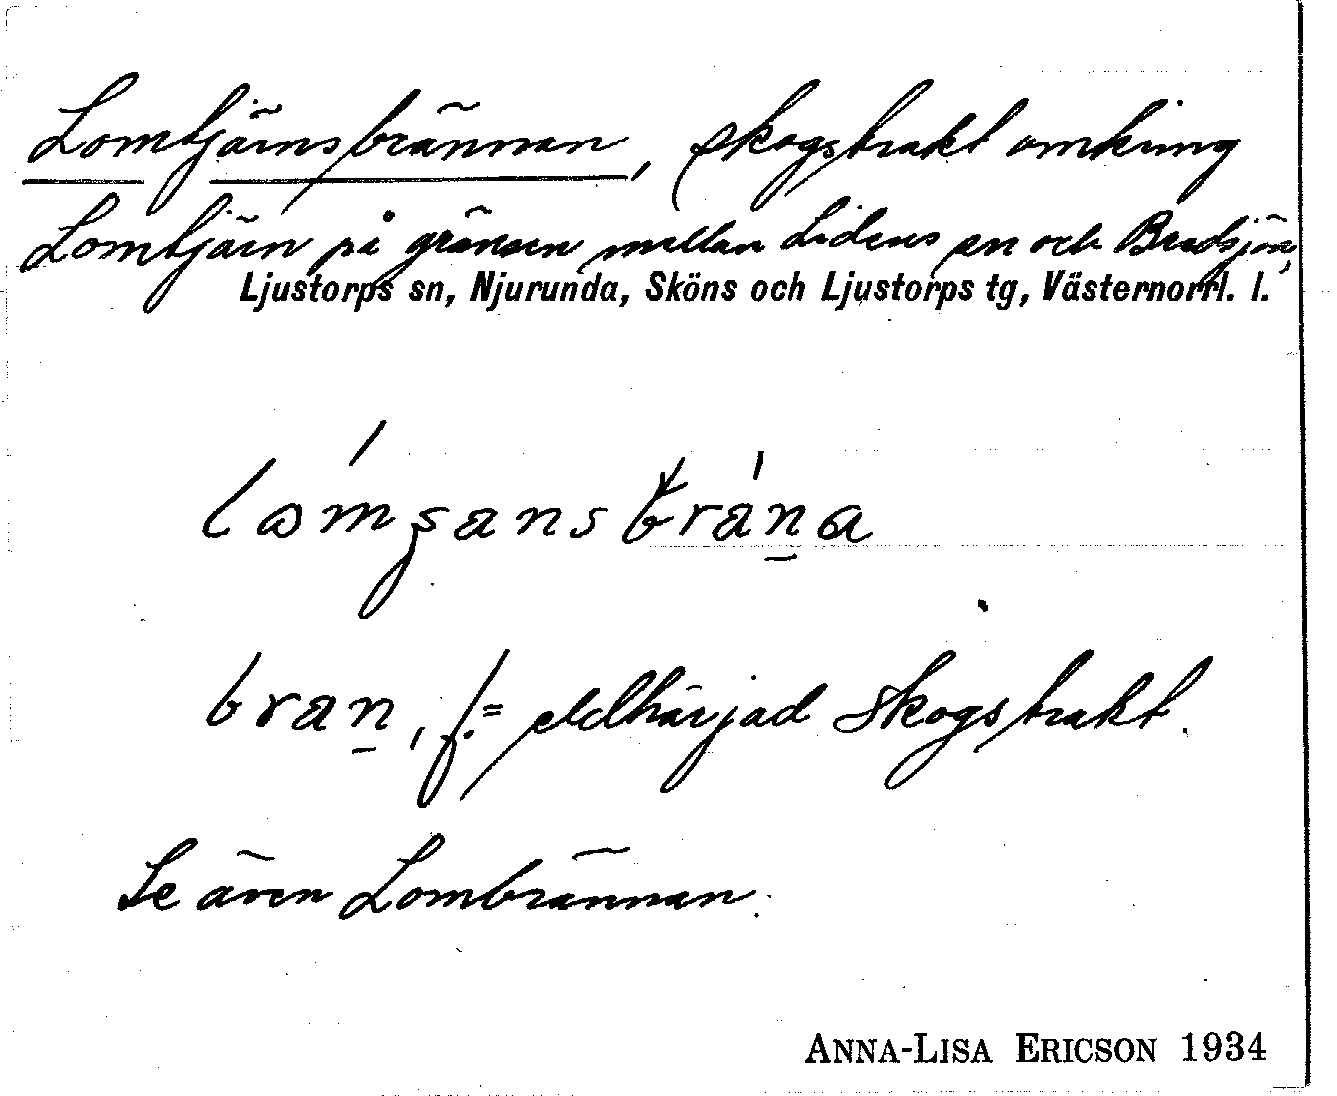 Lomtjärnsbrännan, skogstrakt omkring
Lomtjärn på gränsen mellan Lidens sn och Bredsjön,
Ljustorps sn, Njurunda, Sköns och Ljustorps tg, Västernorrl. l.
bran, f. = eldhärjad skogstrakt.
Se även Lombrännan.
ANNA-LISA ERICSON 1934